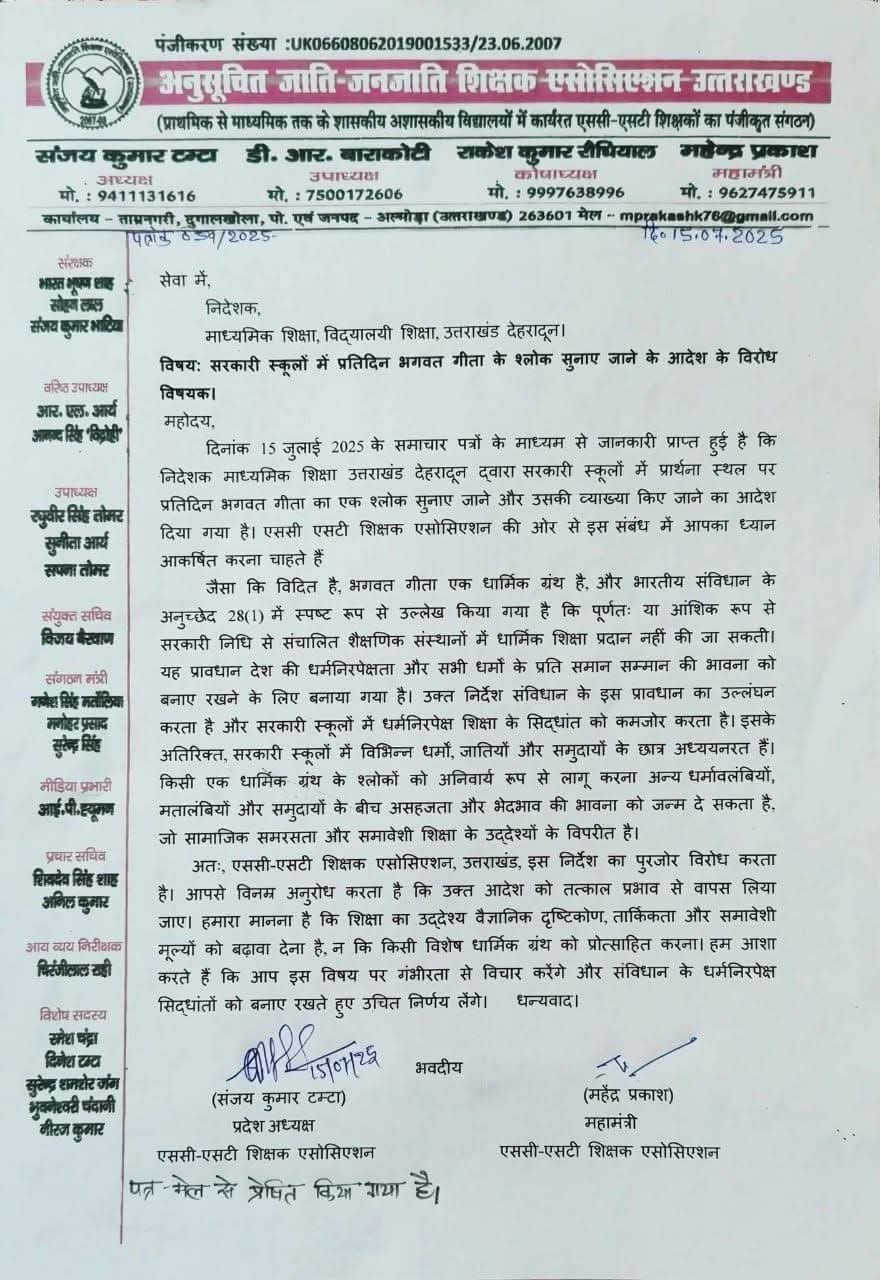 पंजीकरण संख्या :UK06608062019001533/23.06.2007
अनुसूचित जाति-जनजाति शिक्षक एसोसिएशन उत्तराखण्ड
(प्राथमिक से माध्यमिक तक के शासकीय अशासकीय विद्यालयों में कार्यरत एससी-एसटी शिक्षकों का पंजीकृत संगठन)
संजय कुमार टम्टा डी. आर. बाराकोटी राकेश कुमार रीथियाल महेन्द्र प्रकाश
अध्यक्ष उपाध्यक्ष कोषाध्यक्ष महामंत्री
मो. : 9411131616 मो. : 7500172606 मो. : 9997638996 मो. : 9627475911
कार्यालय – ताम्रनगरी, दुगालखोला, पो. एवं जनपद – अल्मोड़ा (उत्तराखण्ड) 263601 मेल – mprakashk76@gmail.com
पत्रांक 039/2025- दि० 15.07.2025
संरक्षक
भारत भूषण शाह
सोहन लाल
संजय कुमार भाटिया
वरिष्ठ उपाध्यक्ष
आर. एल. आर्य
आनन्द सिंह 'विद्रोही'
उपाध्यक्ष
रघुवीर सिंह तोमर
सुनीता आर्य
सपना तोमर
संयुक्त सचिव
विजय बैरवाण
संगठन मंत्री
गणेश सिंह मर्तोलिया
मनोहर प्रसाद
सुरेन्द्र सिंह
मीडिया प्रभारी
आई.पी.ह्यूमन
प्रचार सचिव
शिवदेव सिंह शाह
अनिल कुमार
आय व्यय निरीक्षक
चिरंजीलाल राही
विशेष सदस्य
रमेश चंद्रा
दिनेश टम्टा
सुरेन्द्र शमशेर जंग
भुवनेश्वरी चंदानी
नीरज कुमार
सेवा में,
निदेशक,
माध्यमिक शिक्षा, विद्यालयी शिक्षा, उत्तराखंड देहरादून।
विषय: सरकारी स्कूलों में प्रतिदिन भगवत गीता के श्लोक सुनाए जाने के आदेश के विरोध
विषयक।
महोदय,
दिनांक 15 जुलाई 2025 के समाचार पत्रों के माध्यम से जानकारी प्राप्त हुई है कि
निदेशक माध्यमिक शिक्षा उत्तराखंड देहरादून द्वारा सरकारी स्कूलों में प्रार्थना स्थल पर
प्रतिदिन भगवत गीता का एक श्लोक सुनाए जाने और उसकी व्याख्या किए जाने का आदेश
दिया गया है। एससी एसटी शिक्षक एसोसिएशन की ओर से इस संबंध में आपका ध्यान
आकर्षित करना चाहते हैं
जैसा कि विदित है, भगवत गीता एक धार्मिक ग्रंथ है, और भारतीय संविधान के
अनुच्छेद 28(1) में स्पष्ट रूप से उल्लेख किया गया है कि पूर्णतः या आंशिक रूप से
सरकारी निधि से संचालित शैक्षणिक संस्थानों में धार्मिक शिक्षा प्रदान नहीं की जा सकती।
यह प्रावधान देश की धर्मनिरपेक्षता और सभी धर्मों के प्रति समान सम्मान की भावना को
बनाए रखने के लिए बनाया गया है। उक्त निर्देश संविधान के इस प्रावधान का उल्लंघन
करता है और सरकारी स्कूलों में धर्मनिरपेक्ष शिक्षा के सिद्धांत को कमजोर करता है। इसके
अतिरिक्त, सरकारी स्कूलों में विभिन्न धर्मों, जातियों और समुदायों के छात्र अध्ययनरत हैं।
किसी एक धार्मिक ग्रंथ के श्लोकों को अनिवार्य रूप से लागू करना अन्य धर्मावलंबियों,
मतालंबियों और समुदायों के बीच असहजता और भेदभाव की भावना को जन्म दे सकता है,
जो सामाजिक समरसता और समावेशी शिक्षा के उद्देश्यों के विपरीत है।
अतः, एससी-एसटी शिक्षक एसोसिएशन, उत्तराखंड, इस निर्देश का पुरजोर विरोध करता
है। आपसे विनम्र अनुरोध करता है कि उक्त आदेश को तत्काल प्रभाव से वापस लिया
जाए। हमारा मानना है कि शिक्षा का उद्देश्य वैज्ञानिक दृष्टिकोण, तार्किकता और समावेशी
मूल्यों को बढ़ावा देना है, न कि किसी विशेष धार्मिक ग्रंथ को प्रोत्साहित करना। हम आशा
करते हैं कि आप इस विषय पर गंभीरता से विचार करेंगे और संविधान के धर्मनिरपेक्ष
सिद्धांतों को बनाए रखते हुए उचित निर्णय लेंगे। धन्यवाद।
15/07/25
भवदीय
(संजय कुमार टम्टा) (महेंद्र प्रकाश)
प्रदेश अध्यक्ष महामंत्री
एससी-एसटी शिक्षक एसोसिएशन एससी-एसटी शिक्षक एसोसिएशन
पत्र मेल से प्रेषित किया गया है।